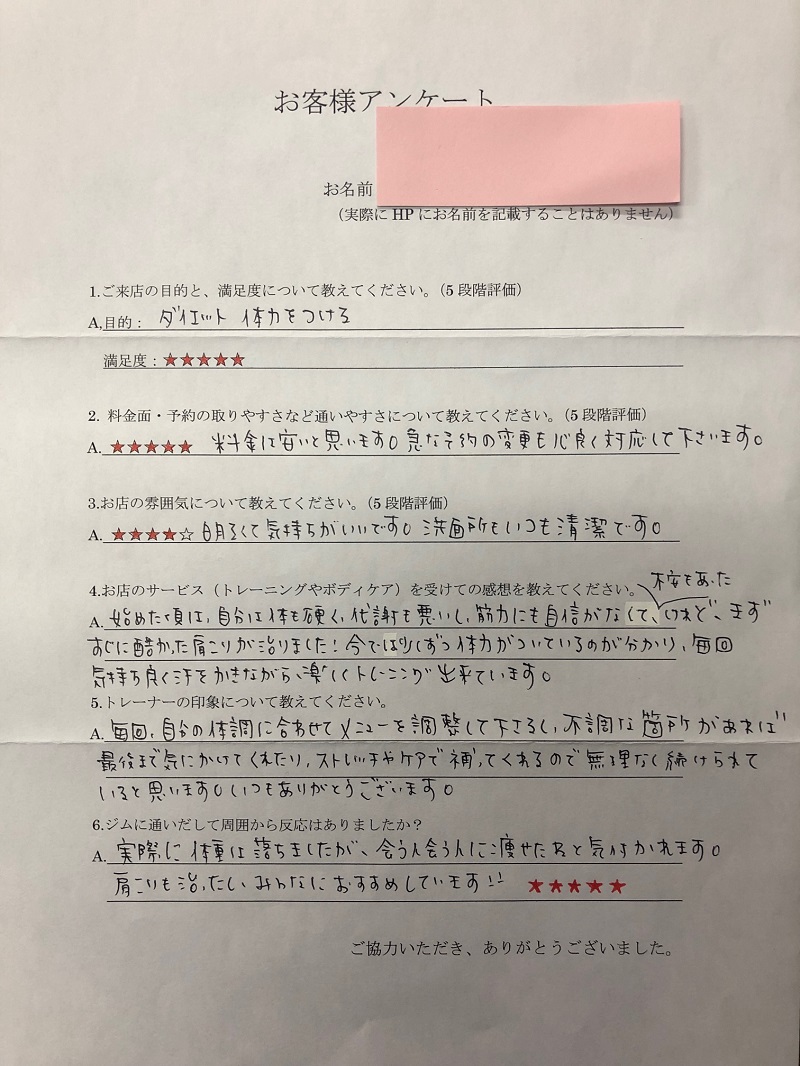 お客様アンケート
お名前
（実際に HP にお名前を記載することはありません）
1.ご来店の目的と、満足度について教えてください。（5 段階評価）
A,目的： ダイエット 体力をつける
満足度：★★★★★
2. 料金面・予約の取りやすさなど通いやすさについて教えてください。（5 段階評価）
A. ★★★★★ 料金は安いと思います。急な予約の変更も心良く対応して下さいます。
3.お店の雰囲気について教えてください。（5 段階評価）
A. ★★★★☆ 明るくて気持ちがいいです。洗面所もいつも清潔です。
4.お店のサービス（トレーニングやボディケア）を受けての感想を教えてください。
A. 始めた頃は、自分は体も硬く、代謝も悪いし、筋力にも自信がなくて、けれど、まず
すぐに酷かった肩こりが治りました！今では少しずつ体力がついているのが分かり、毎回
気持ち良く汗をかきながら、楽しくトレーニング出来ています。
5.トレーナーの印象について教えてください。
A. 毎回、自分の体調に合わせてメニューを調整して下さるし、不調な箇所があれば
最後まで気にかけてくれたり、ストレッチやケアで補ってくれるので無理なく続けられて
いると思います。いつもありがとうございます。
6.ジムに通いだして周囲から反応はありましたか？
A. 実際に体重は落ちましたが、会う人会う人に痩せたねと気付かれます。
肩こりも治ったし みんなにおすすめしています!! ★★★★★
ご協力いただき、ありがとうございました。